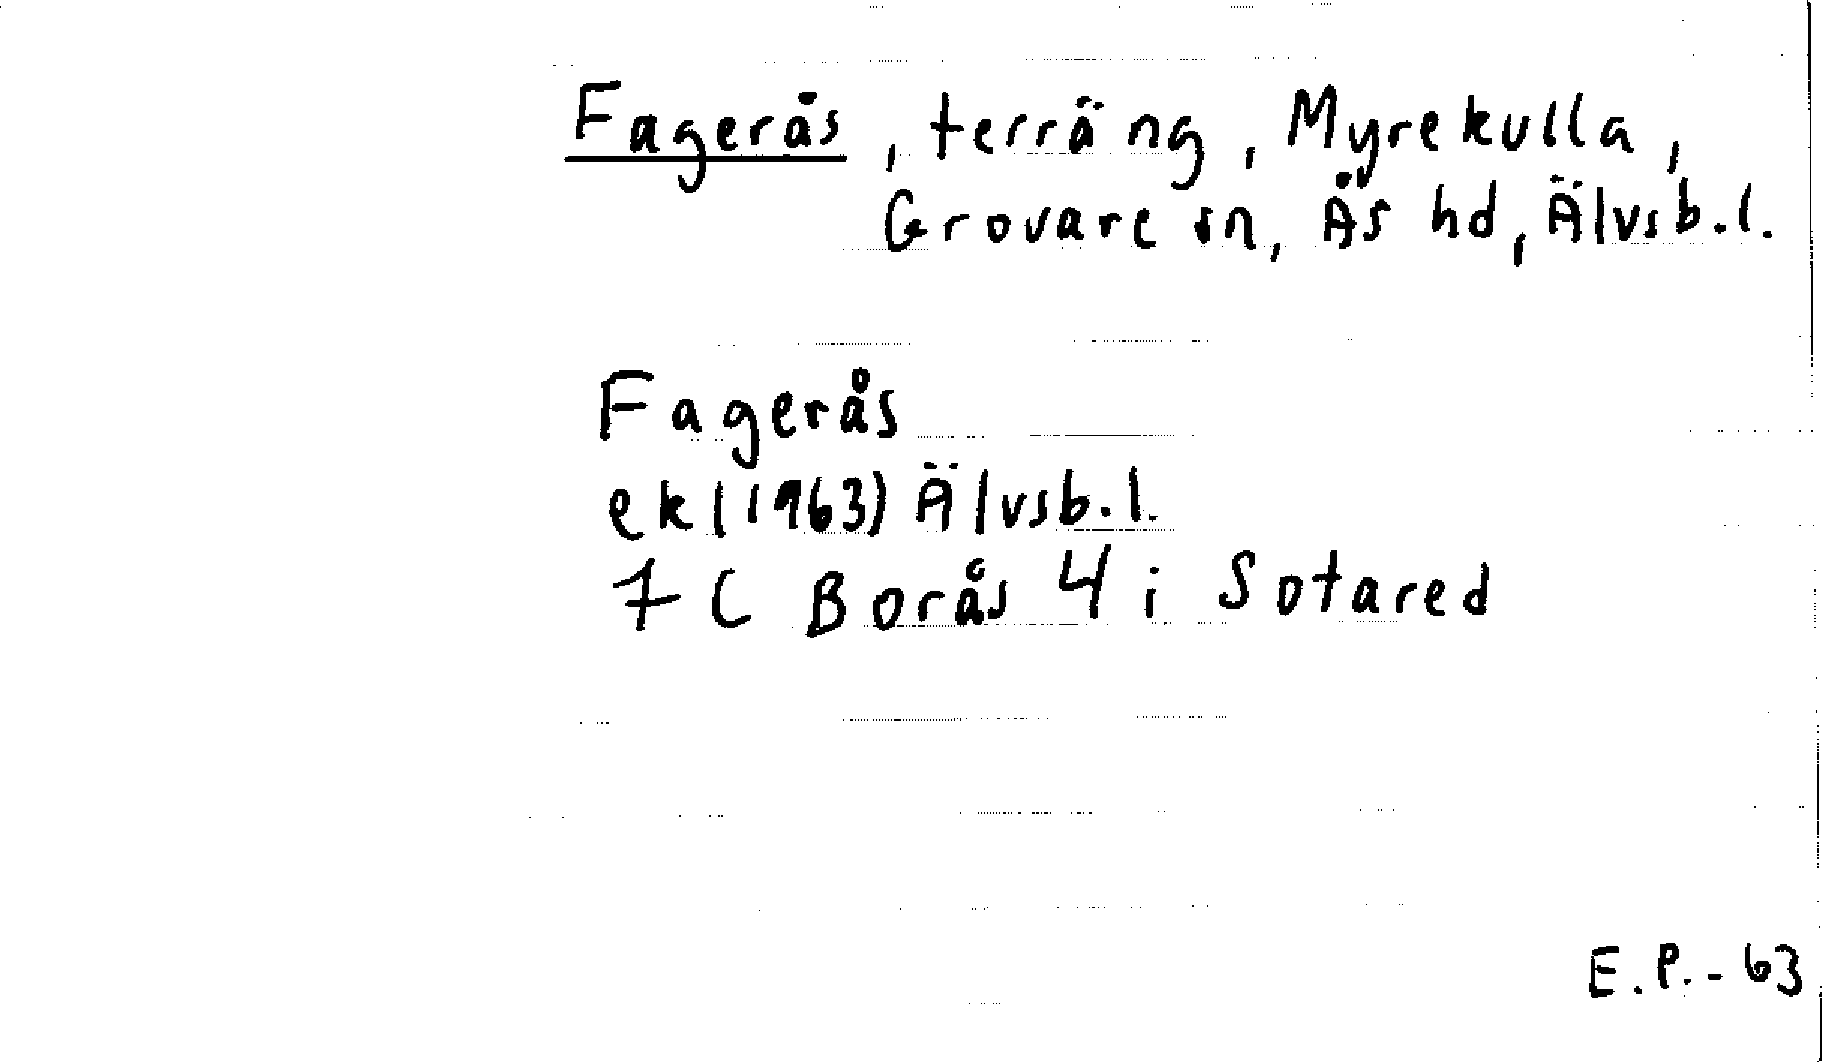 Fagerås, terräng, Myrekulla,
Grovare sn, Ås hd, Älvsb.l.
Fagerås
ek (1963) Älvsb.l.
7 C Borås 4 i Sotared
E.P.-63